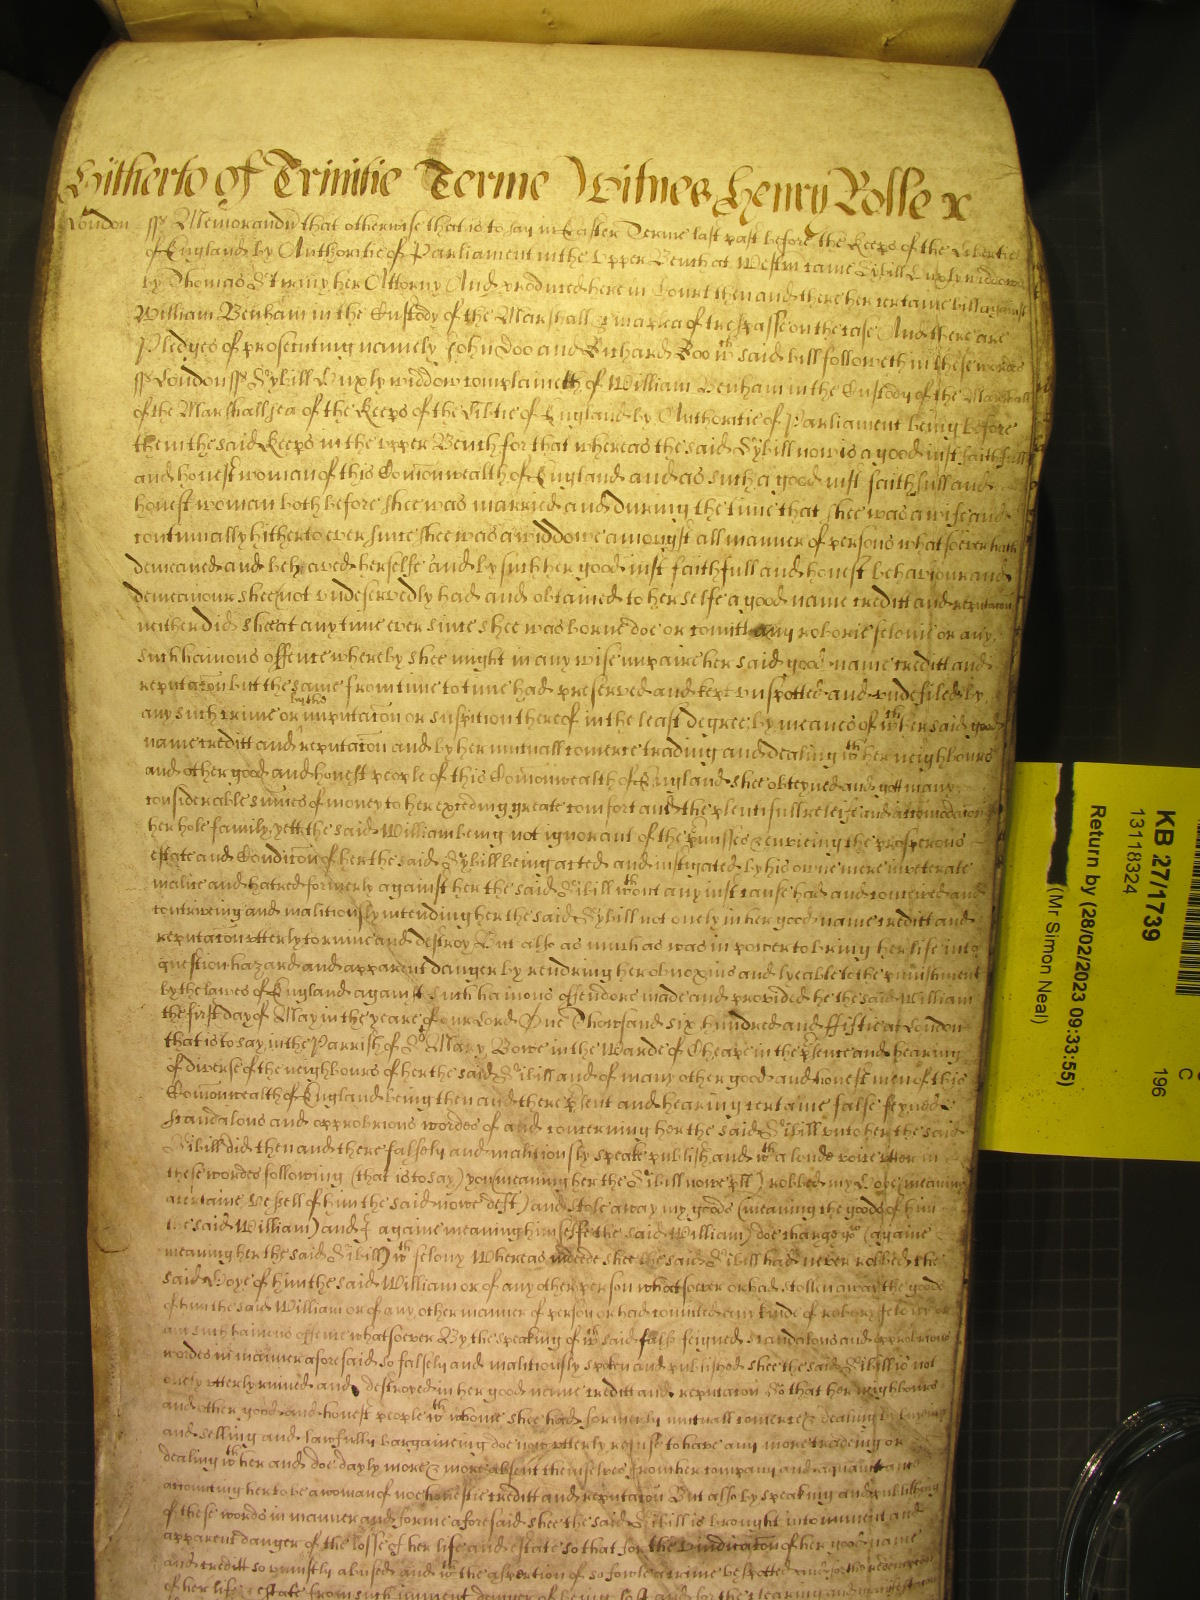 Hitherto of Trinitie Terme Witnes Henry Rolle
London ss Memorand that otherwise that is to say in Easter Terme last past before the Keeps of the Libertie
of England by Authoritie of Parliament in the Upper Bench at Westm came Sybill Luxly widdowe
by Thomas her Attorny And produced here in Court then and there her certaine bill against
William Benham in the Custody of the Marshall &c in a plea of trespasse on the case And there are
Pledges of prosecuting namely John Doo and Richard Roo wch said bill followeth in these wordes
ss London ss Sybill Luxly widdow complaineth of William Benham in the Custody of the Marshall
of the Marshallsea of the Keeps of the Libtie of England by Authoritie of Parliament being before
them the said Keeps in the upper Bench for that whereas the said Sybill now is a good iust faithfull
and honest woman of this Comonwealth of England and as such a good iust faithfull and
honest woman both before shee was married and during the time that shee was a wife and
continually hitherto ever since shee was a widdowe amongst all manner of persons whatsoever hath
demeaned and behaved herselfe and by such her good iust faithfull and honest behaviour and
demeanour shee not undeservedly had and obtained to herselfe a good name creditt and reputacon
neither did shee at any time ever since shee was borne doe or comitt any roborie felonie or any
such hainous offence whereby shee might in any wise impaire her said good name creditt and
reputacon but the same from time to time had preserved and kept unspotted and undefiled by
any such crime or imputacon or suspition thereof in the least degree by meanes of wch her said good
name creditt and reputacon and by her mutuall comerce trading and dealing wth her neighbours
and other good and honest people of this Comonwealth of England shee obteyned and gott many
considerable summes of money to her exceding greate comfort and the plentifull releife and accomodacon of
her hole family, yett the said William being not ignorant of the pmisses & envieing the prosperous
estate and Condicon of her the said Sybill being acted and instigated by his owne mere inveterate
malice and hatred formerly against her the said Sibill wthout any iust cause had and conceived and
contriveing and malitiously intending her the said Sybill not onely in her good name creditt and
reputacon utterly to ruine and destroy But also as much as was in power to bring her life into
question hazard and apparent danger by rendring her obnoxius and lyeable to the punishment
by the lawes of England against such hainous offendors made and provided he the said William
the first day of May in the yeare of our Lord One Thowsand six hundred and ffiftie at London
that is to say in the Parrish of St Mary Bowe in the Warde of Cheape in the psence and hearing
of diverse of the neighbours of her the said Sibill and of many other good and honest men of this
Comonwealth of England being then and there psent and hearing certaine false feyned
scandalous and opprobrious wordes of and concerning her the said Sibill unto her the said
Sibill did then and there falsely and malitiously speake publish and wth a loude voice utter in
these wordes following (that is to say) you (meaning her the Sibill nowe plt) robbed my (meaning
of him the said nowe deft) and stole away my goods (meaning the goods of him
the said William) and I againe meaning himselfe the said William) doe charge yo (againe
meaning her the said Sibill) wth felony Whereas indeede shee the said Sibill had never robbed the
said of him the said William or of any other person whatsoever or had stollen away the goods
of him the said William or of any other manner of person or had comitted any kinde of robory felony or
any such hainous offence whatsoever By the speaking of wch said false feigned scandalous and opprobrious
wordes in manner aforesaid so falsely and malitiously spoken and published shee the said Sibill is not
onely utterly ruined and destroyed in her good name creditt and reputacon So that her neighbours
and other good and honest people wth whome shee had formerly mutuall comerce & dealing by buying
and selling and lawfully bargaineing doe now utterly refuse to have any more tradeing or
dealing wth her and doe dayly more & more absent themselves from her company and aquaintance
accounting her to be a woman of noe honestie creditt and reputacon But also by speaking and publishing
of these words in manner and forme aforesaid shee the said Sibill is brought into iminent and
apparent danger of the losse of her life and estate so that for the vindicacon of her good name
and creditt so uniustly abused and wth the aspertion of so fowle a crime bespotted and for the redemption
of her life & estate from such iminent danger of being lost and for the clearing and
KB 27/1739
13118324
Return by (28/02/2023 09:33:55)
(Mr Simon Neal)
C
196